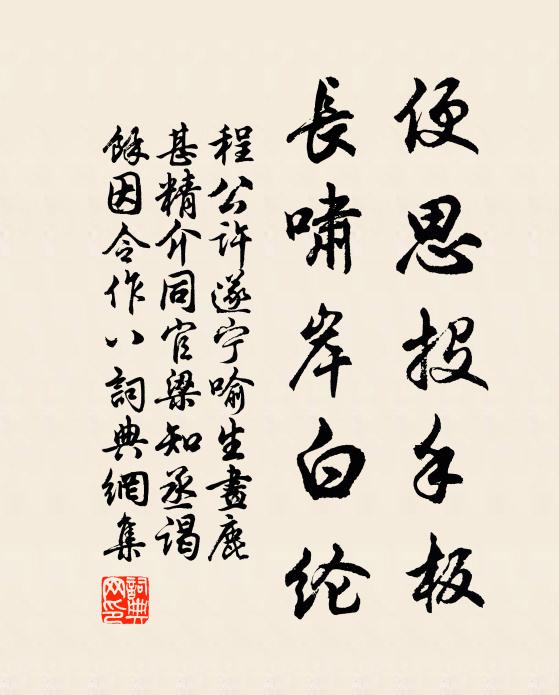 便思投手板
長嘯岸白纶
程公許遂宁喻生畫鹿
甚精介同官梁知丞谒
餘因令作八詞典網集